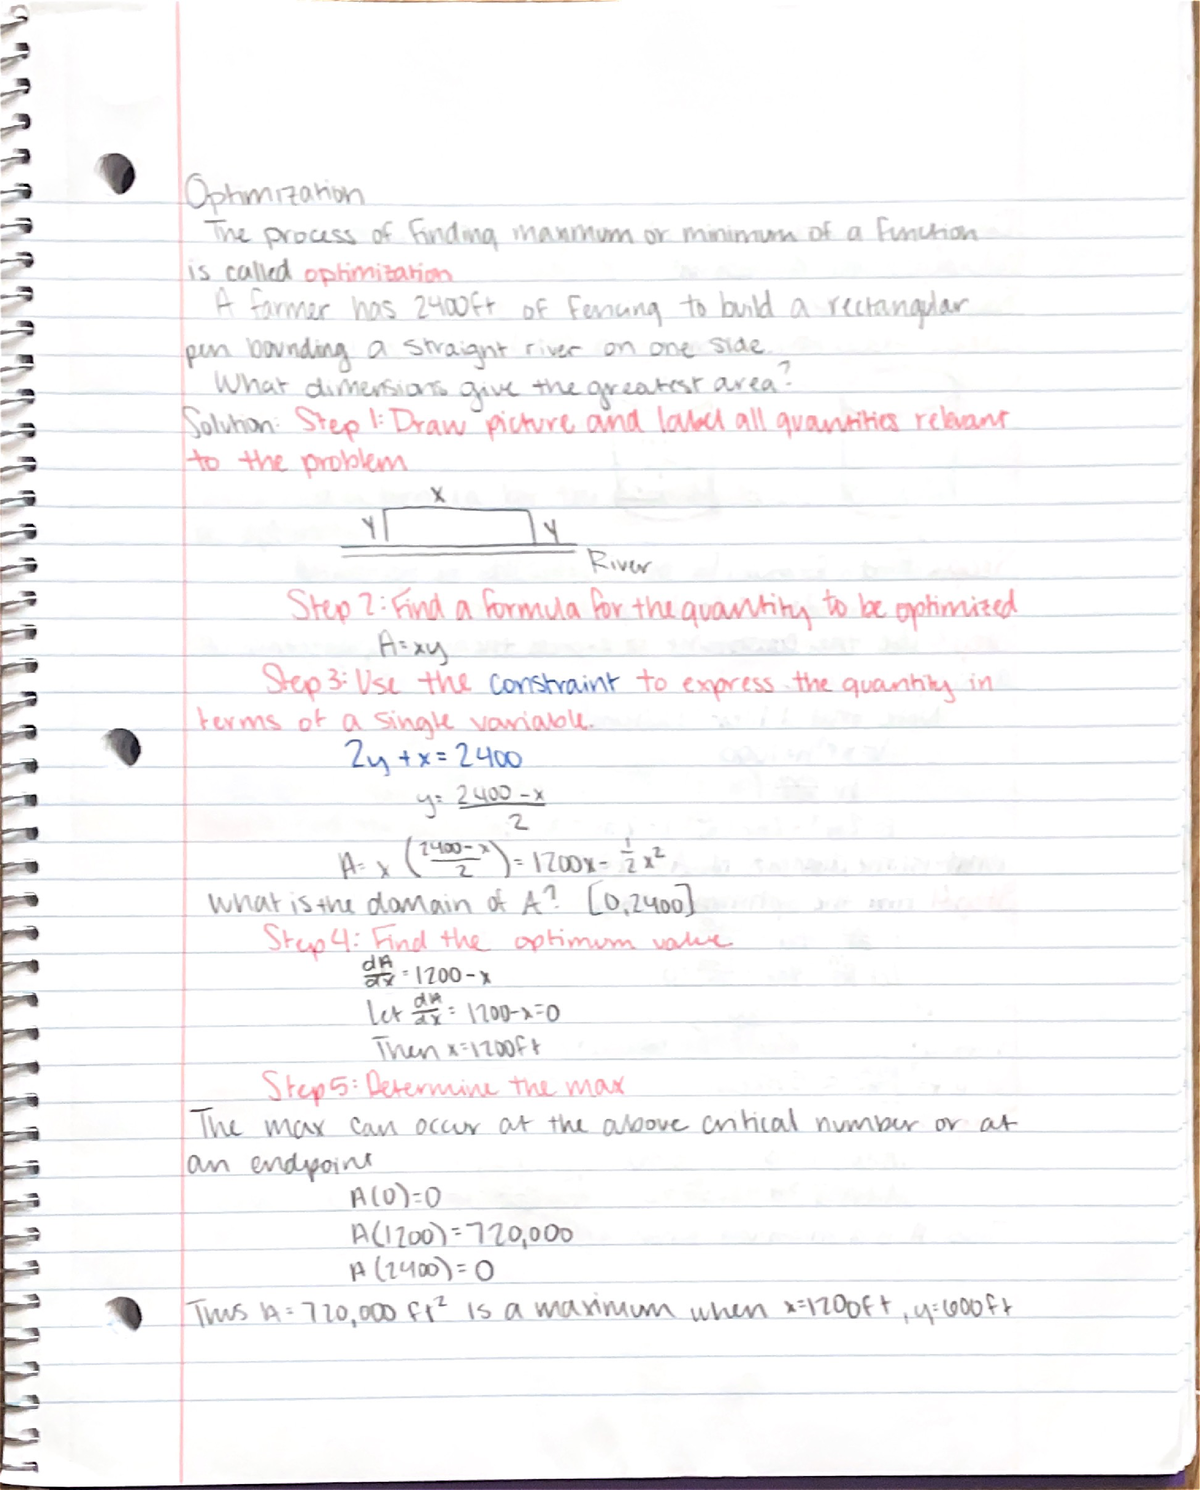 Optimization
The process of finding maximum or minimum of a function
is called optimization
A farmer has 2400ft of fencing to build a rectangular
pen bounding a straight river on one side.
What dimensions give the greatest area?
Solution: Step 1: Draw picture and label all quantities relevant
to the problem
x
y y
River
Step 2: Find a formula for the quantity to be optimized
A=xy
Step 3: Use the constraint to express the quantity in
terms of a single variable.
2y + x = 2400
y = (2400-x)/2
A = x ((2400-x)/2) = 1200x - 1/2 x²
What is the domain of A? [0,2400]
Step 4: Find the optimum value
dA/dx = 1200-x
Let dA/dx = 1200-x=0
Then x=1200ft
Step 5: Determine the max
The max can occur at the above critical number or at
an endpoint
A(0)=0
A(1200)=720,000
A(2400)=0
Thus A=720,000 ft² is a maximum when x=1200ft, y=600ft